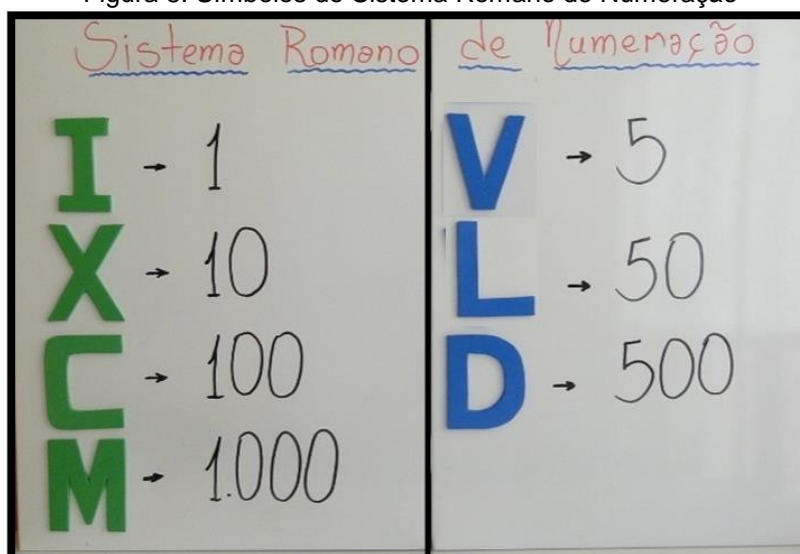 Sistema Romano de Numeração
I → 1
X → 10
C → 100
M → 1.000
V → 5
L → 50
D → 500